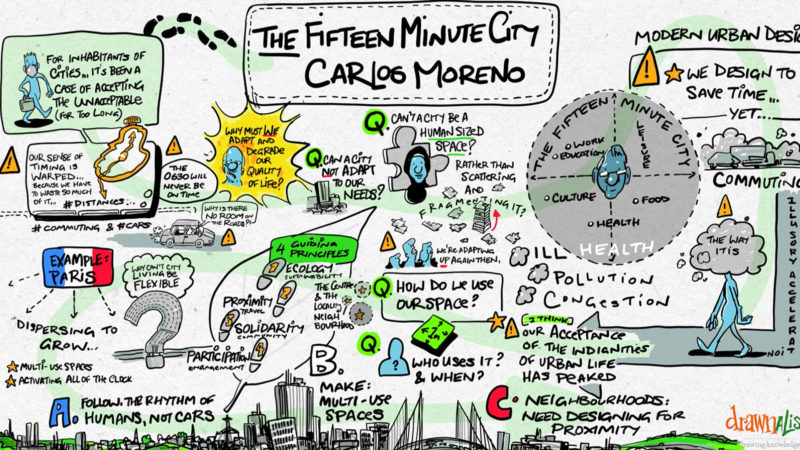 THE FIFTEEN MINUTE CITY
CARLOS MORENO
FOR INHABITANTS OF
CITIES... IT'S BEEN A
CASE OF ACCEPTING
THE UNACCEPTABLE
(FOR TOO LONG)
OUR SENSE OF
TIMING IS
WARPED...
BECAUSE WE HAVE
TO WASTE SO MUCH
OF IT...
#DISTANCES...
#COMMUTING & #CARS
THE
0630 WILL
NEVER BE
ON TIME
WHY IS THERE
NO ROOM ON
THE ROADS?!
WHY MUST WE
ADAPT AND
DEGRADE
OUR
QUALITY
OF LIFE?
Q. CAN A CITY
NOT ADAPT
TO OUR
NEEDS?
Q. CAN'T A CITY BE A
HUMAN SIZED
SPACE?
RATHER THAN
SCATTERING
AND
FRAGMENTING IT?
WE'RE ADAPTING
UP AGAIN THEN,
THE FIFTEEN MINUTE CITY
WORK
EDUCATION
LEISURE
CULTURE
FOOD
HEALTH
HEALTH
MODERN URBAN DESIG
WE DESIGN TO
SAVE TIME...
YET...
COMMUTING
THE WAY
IT IS
ILLUSORY ACCELERAT
EXAMPLE:
PARIS
DISPERSING TO
GROW...
MULTI-USE SPACES
ACTIVATING ALL OF THE CLOCK
WHY CAN'T CITY
LIVING BE
FLEXIBLE
4 GUIDING
PRINCIPLES
1 ECOLOGY
SUSTAINABILITY
2
PROXIMITY
TRAVEL
3
SOLIDARITY
COMMUNITY
4
PARTICIPATION
ENGAGEMENT
THE CENTRE
& THE
LOCALITY/
NEIGH
BOURHOOD
Q. HOW DO WE USE
OUR SPACE?
Q. WHO USES IT?
& WHEN?
ILL
POLLUTION
CONGESTION
I THINK
OUR ACCEPTANCE
OF THE INDIGNITIES
OF URBAN LIFE
HAS PEAKED
A. FOLLOW THE RHYTHM OF
HUMANS, NOT CARS
B.
MAKE:
MULTI-USE
SPACES
C. NEIGHBOURHOODS:
NEED DESIGNING FOR
PROXIMITY
drawnalis
drawing.knowledge